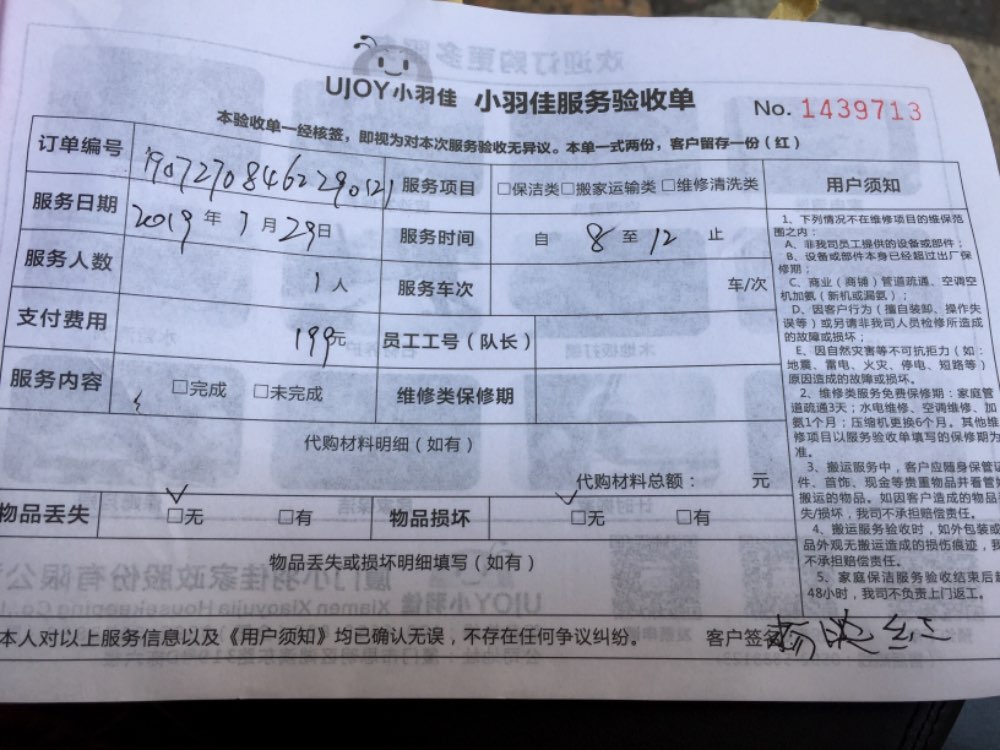 UJOY小羽佳 小羽佳服务验收单 No. 1439713
本验收单一经核签，即视为对本次服务验收无异议。本单一式两份，客户留存一份（红）
订单编号 190727084622290121 服务项目 □保洁类□搬家运输类□维修清洗类
服务日期 2019 年 7 月 29 日 服务时间 自 8 至 12 止
服务人数 1 人 服务车次 车/次
支付费用 199元 员工工号（队长）
服务内容 □完成 □未完成 维修类保修期
代购材料明细（如有）
代购材料总额： 元
物品丢失 □无 □有 物品损坏 □无 □有
物品丢失或损坏明细填写（如有）
本人对以上服务信息以及《用户须知》均已确认无误，不存在任何争议纠纷。 客户签名
用户须知
1、下列情况不在维修项目的维保范
围之内：
A、非我司员工提供的设备或部件；
B、设备或部件本身已经超过出厂保
修期；
C、商业（商铺）管道疏通、空调空
机加氨（新机或漏氨）；
D、因客户行为（擅自装卸、操作失
误等）或另请非我司人员检修所造成
的故障或损坏；
E、因自然灾害等不可抗拒力（如：
地震、雷电、火灾、停电、短路等）
原因造成的故障或损坏。
2、维修类服务免费保修期：家庭管
道疏通3天；水电维修、空调维修、加
氨1个月；压缩机更换6个月。其他维
修项目以服务验收单填写的保修期为
准。
3、搬运服务中，客户应随身保管证
件、首饰、现金等贵重物品并看管好
搬运的物品。如因客户造成的物品
失/损坏，我司不承担赔偿责任。
4、搬运服务验收时，如外包装或
品外观无搬运造成的损伤痕迹，我
不承担赔偿责任。
5、家庭保洁服务验收结束后超
48小时，我司不负责上门返工。